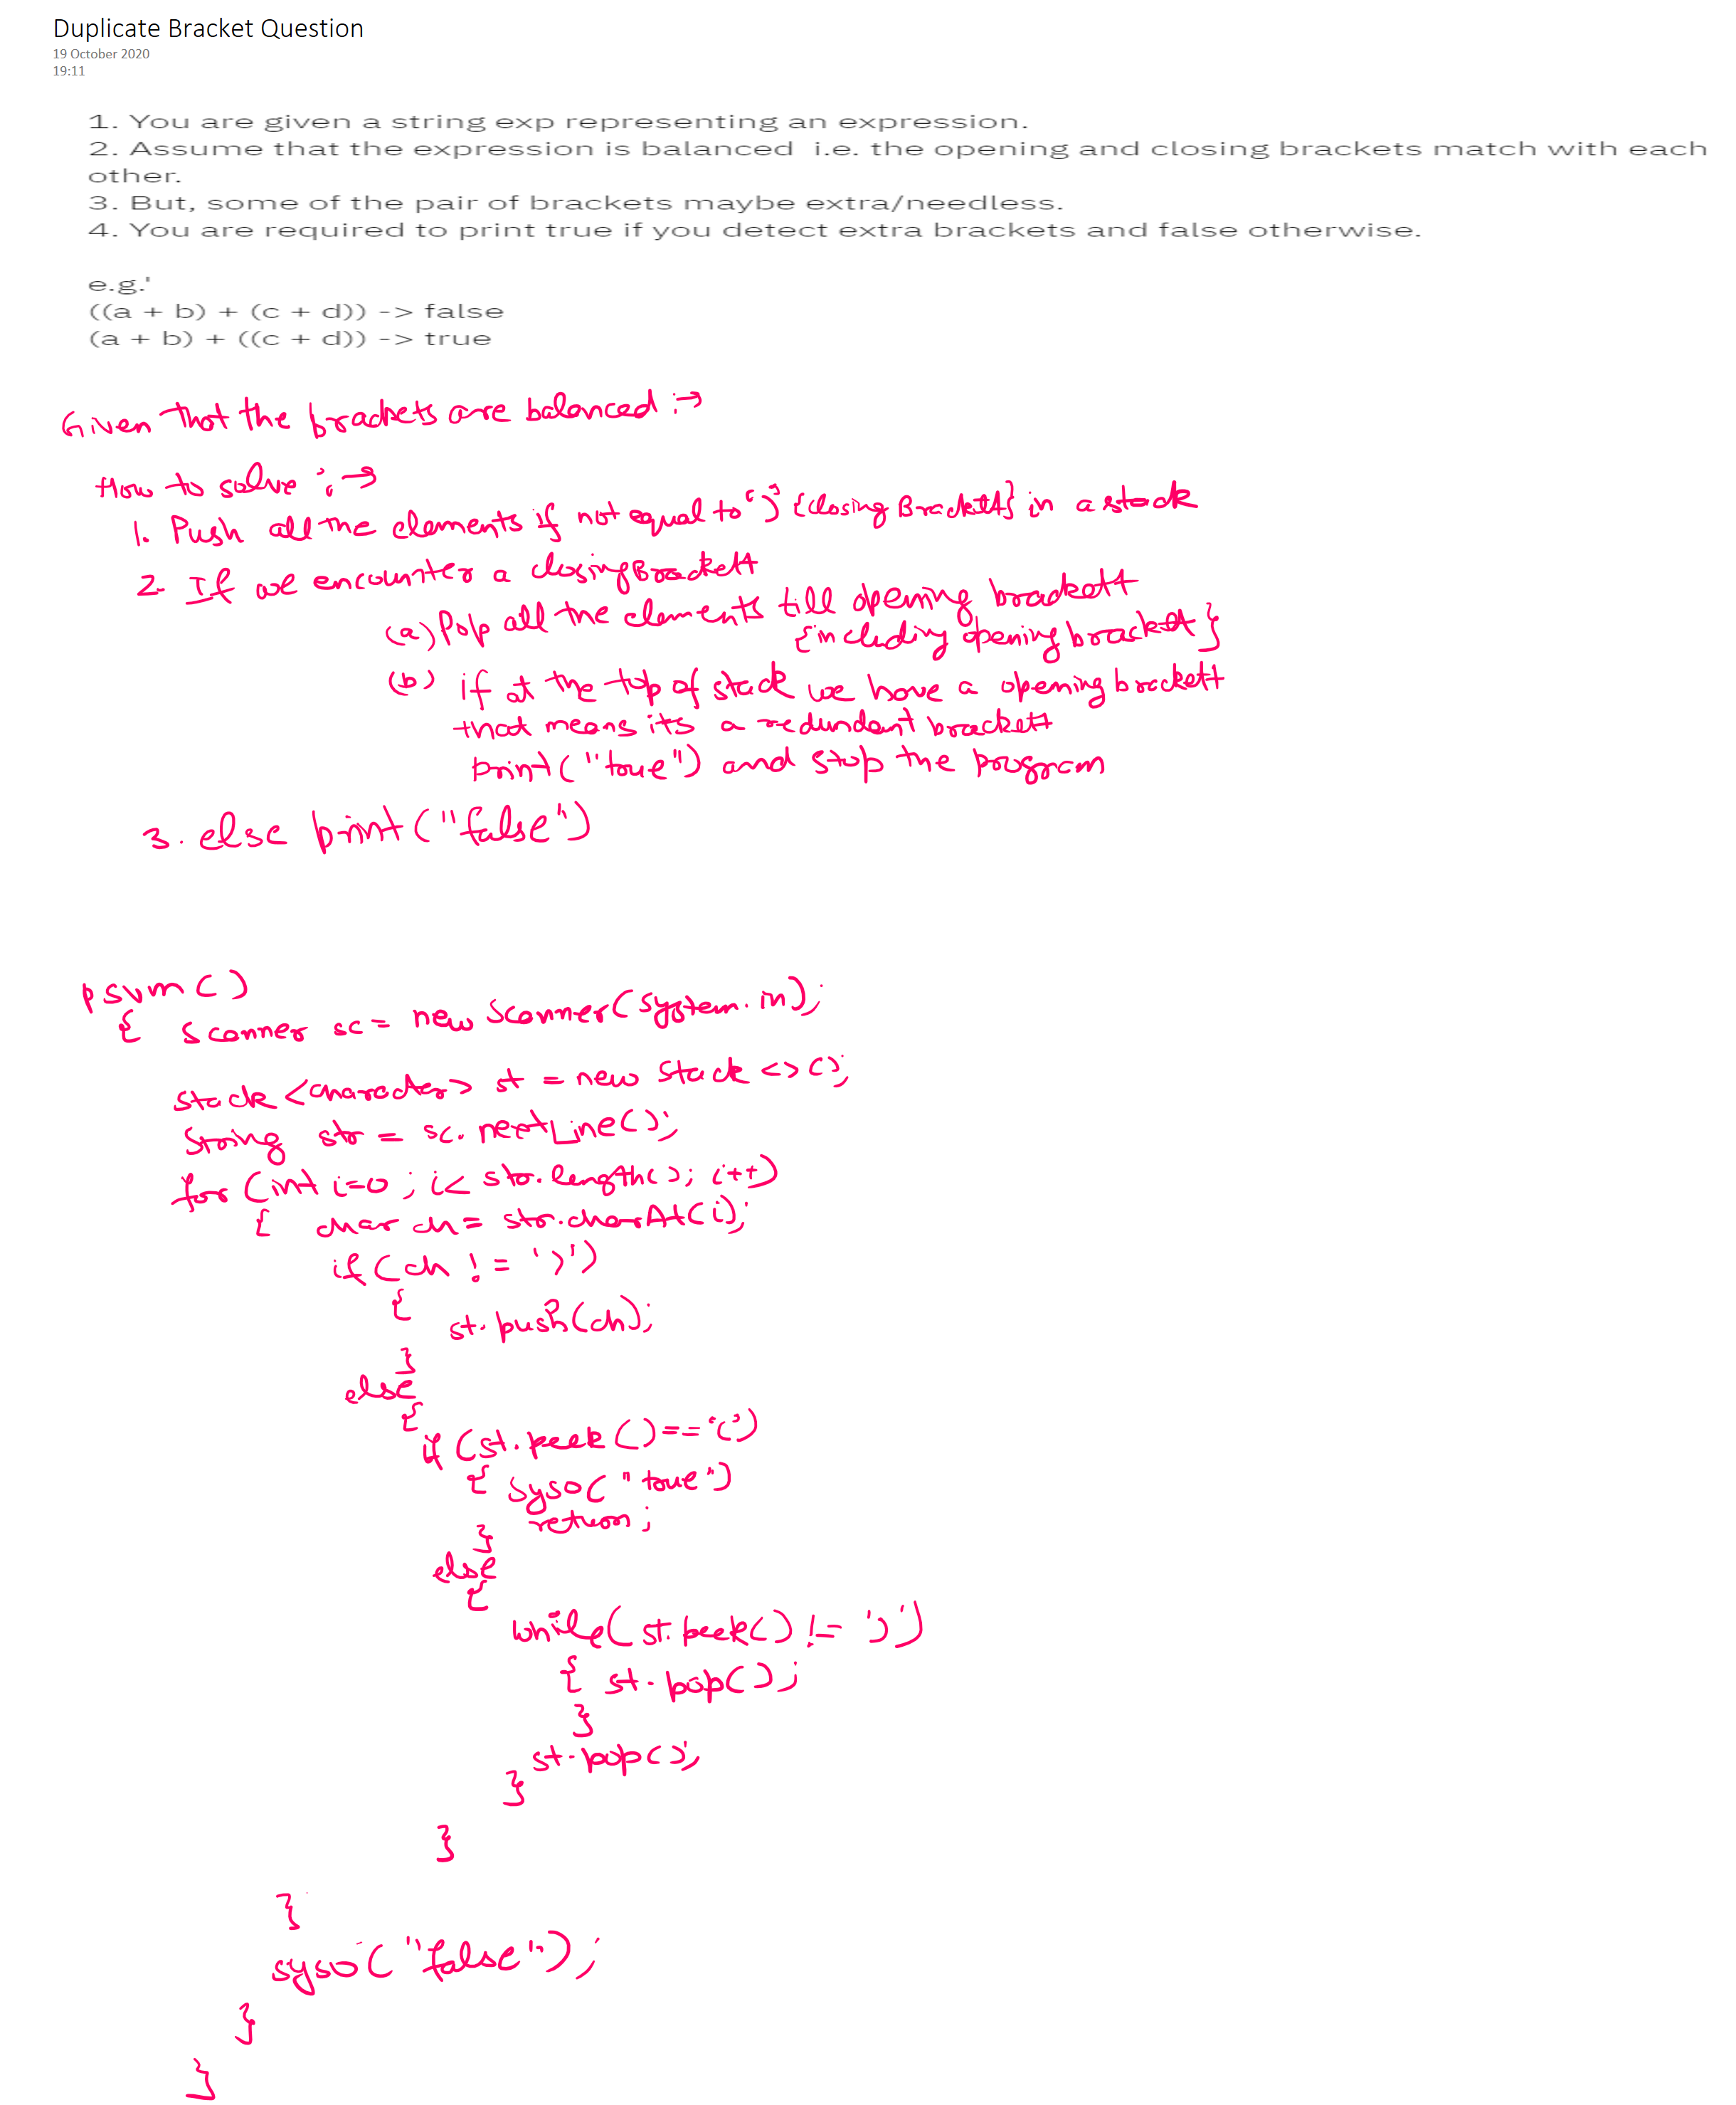 Duplicate Bracket Question
19 October 2020
19:11
1. You are given a string exp representing an expression.
2. Assume that the expression is balanced  i.e. the opening and closing brackets match with each
other.
3. But, some of the pair of brackets maybe extra/needless.
4. You are required to print true if you detect extra brackets and false otherwise.
e.g.'
((a + b) + (c + d)) -> false
(a + b) + ((c + d)) -> true
Given that the brackets are balanced :→
How to solve :→
1. Push all the elements if not equal to ')' {closing Brackett} in a stack
2. If we encounter a closing Brackett
(a) Pop all the elements till opening brackett
{including opening brackett}
(b) if at the top of stack we have a opening brackett
that means its a redundant brackett
print("true") and stop the program
3. else print("false")
psvm()
{ Scanner sc = new Scanner(System.in);
Stack <Character> st = new Stack <>();
String str = sc.nextLine();
for (int i=0; i< str.length(); i++)
{ char ch = str.charAt(i);
if (ch != ')')
{
st.push(ch);
}
else
{
if (st.peek()=='(')
{ syso("true")
return;
}
else
{
while(st.peek() != ')')
{ st.pop();
}
st.pop();
}
}
}
syso("false");
}
}